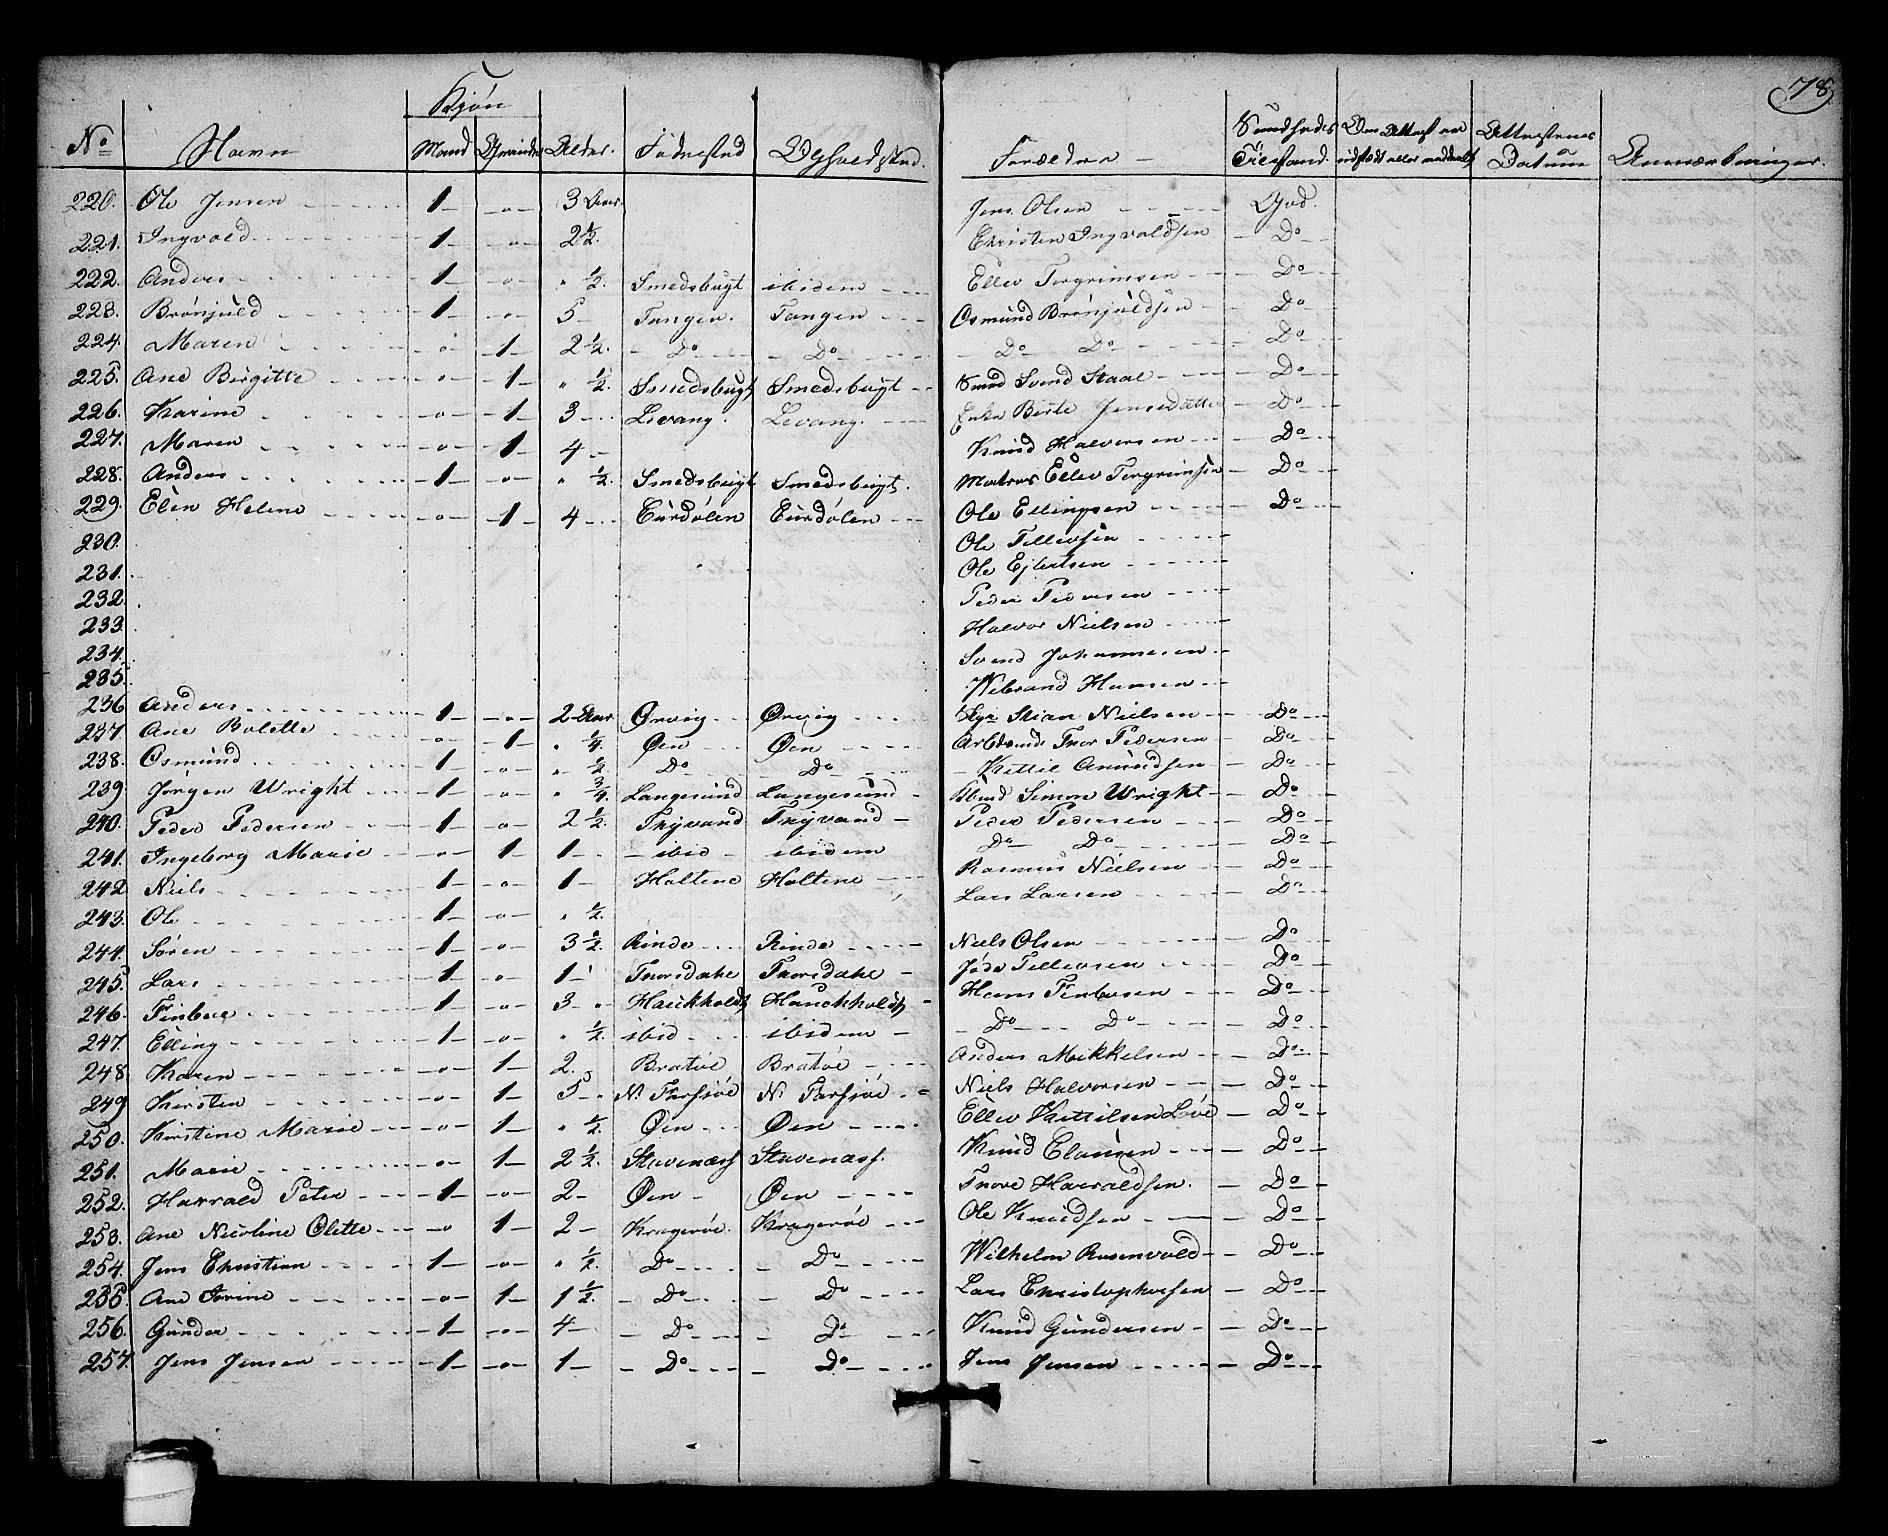 78
Kjön
No Navn Mand Qvinde Alder. Fødested Opholdsted. Forældre Sundheds Tilstand. Om Attest er udstædt eller meddeelt Attestens Datum Anmærkninger.
220. Ole Jensen 1 o 3 Aar Jens Olsen God.
221. Ingvold 1 o 2½ Christen Ingvoldsen Do
222. Anders 1 o " ½ Smedsbugt ibidem Ellev Tergrimsen Do
223. Brönjuld 1 o 5 Tangen. Tangen Osmund Brönjuldsen Do
224. Maren o 1 2½ Do Do Do Do Do
225. Ane Birgitte o 1 " ½ Smedsbugt Smedsbugt Svend Staal Do
226. Karine o 1 3 Levang. Levang. Enke Birte Jensedatter Do
227. Maren o 1 4 Knud Halversen Do
228. Anders 1 o " ½ Smedsbugt Smedsbugt. Matros Ellev Tergrimsen Do
229. Elen Helene o 1 4 Eurdölen Eurdölen Ole Ellingsen Do
230. Ole Tellevsen
231. Ole Ejlertsen
232. Peder Pedersen
233. Halvor Nielsen
234. Svend Johannesen
235. Webrand Hansen
236 Anders 1 o 2 Aar Ørvig Ørvig Stian Nielsen Do
237. Ane Bolette o 1 " ¼ Øen Øen Arbdsmd. Thor Pedersen Do
238. Osmund 1 o " ½ Do Do Kittil Amundsen Do
239. Jörgen Wright 1 o " ¾ Langesund Langesund Simon Wright Do
240. Peder Pedersen 1 o 2½ Thyvand Thyvand Peder Pedersen Do
241. Ingeborg Marie o 1 1 ibid ibidem Do Do Do
242 Niels 1 o 1 Haltene Holtene Rasmus Nielsen Do
243. Ole 1 o " ½ Lars Larsen Do
244. Sören 1 o 3½ Rinde Rinde Niels Olsen Do
245. Lars 1 o 1 Thorsdahl Thorsdahl Tellevsen Do
246. Finboe 1 o 3 Hauckholdt Hauckholdt Hans Finboesen Do
247. Elling 1 o " ½ ibid ibidem Do Do Do
248. Karen o 1 2. Bratöe Bratöe Anders Mikkelsen Do
249 Kirsten o 1 5 N. Farsjöe N. Farsjöe Niels Halversen Do
250. Kirstine Marie o 1 " ½ Øen Øen Ellev Kittilsen Löve Do
251. Marie o 1 2½ Stavenæss Stavenæss. Knud Clausen Do
252. Harrald Peter 1 o 2 Øen Øen Thore Harraldsen. Do
253. Ane Nicoline Olette o 1 2 Krageröe. Krageröe Ole Knudsen Do
254. Jens Christian 1 o " ½ Do Do Wilhelm Rosenvold Do
255. Ane Torine o 1 1½ Do Do Lars Christophersen Do
256. Gunder 1 o 4 Do Do Knud Gundersen Do
257. Jens Jensen 1 o 1 Do Do Jens Jensen Do